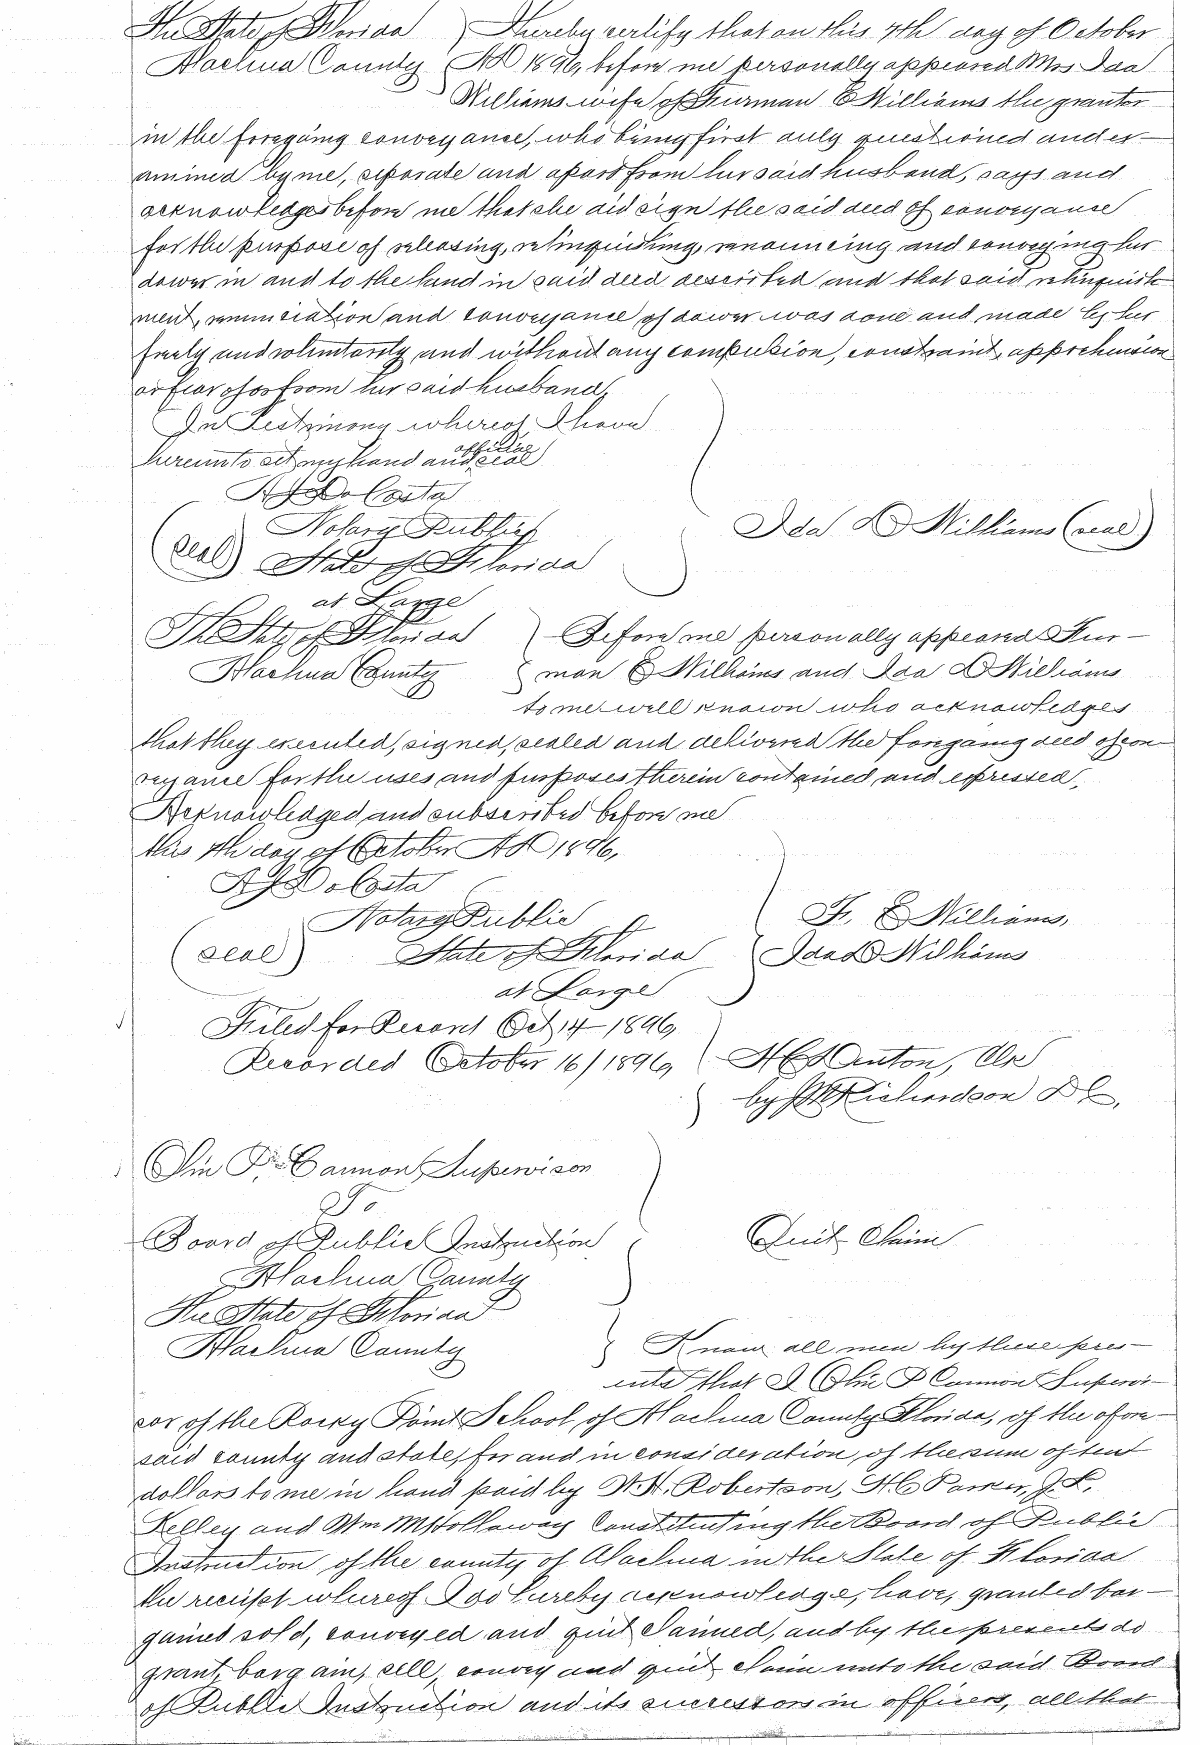 The State of Florida } I hereby certify that on this 7th day of October
Alachua County } AD 1896, before me personally appeared Mrs Ida
Williams wife of Furman E Williams the grantor
in the foregoing conveyance, who being first duly questioned and ex-
amined by me, separate and apart from her said husband, says and
acknowledges before me that she did sign the said deed of conveyance
for the purpose of releasing, relinquishing, renouncing and conveying her
dower in and to the land in said deed described and that said relinquish
ment, renunciation and conveyance of dower was done and made by her
freely and voluntarily and without any compulsion, constraint, apprehension
or fear of or from her said husband,
In Testimony whereof I have
hereunto set my hand and official seal
A J DaCosta
Notary Public
(seal) State of Florida
at Large
Ida D Williams (seal)
The State of Florida } Before me personally appeared Fur-
Alachua County } man E Williams and Ida D Williams
to me well known who acknowledges
that they executed, signed, sealed and delivered the foregoing deed of con-
veyance for the uses and purposes therein contained and expressed,
Acknowledged and subscribed before me
this 7th day of October AD 1896,
A J DaCosta
Notary Public
(seal) State of Florida
at Large
F. E Williams,
Ida D Williams
Filed for Record Oct 14 1896,
Recorded October 16/1896,
H C Denton, Clk
by Richardson D C,
Olin P. Cannon Supervisor
To
Board of Public Instruction
Alachua County
Quit Claim
The State of Florida
Alachua County } Know all men by these pres-
ents that I Olin P Cannon Supervi-
sor of the Rocky Point School, of Alachua County Florida, of the afore-
said county and state, for and in consideration, of the sum of tent
dollars to me in hand paid by W. H. Robertson, H. C Parker, J. L.
Kelley and Wm M Holloway Constituting the Board of Public
Instruction of the county of Alachua in the State of Florida
the receipt whereof I do hereby acknowledge, have, granted bar-
gained sold, conveyed and quit claimed, and by the presents do
grant, bargain, sell, convey and quit claim unto the said Board
of Public Instruction and its successors in officers, all that